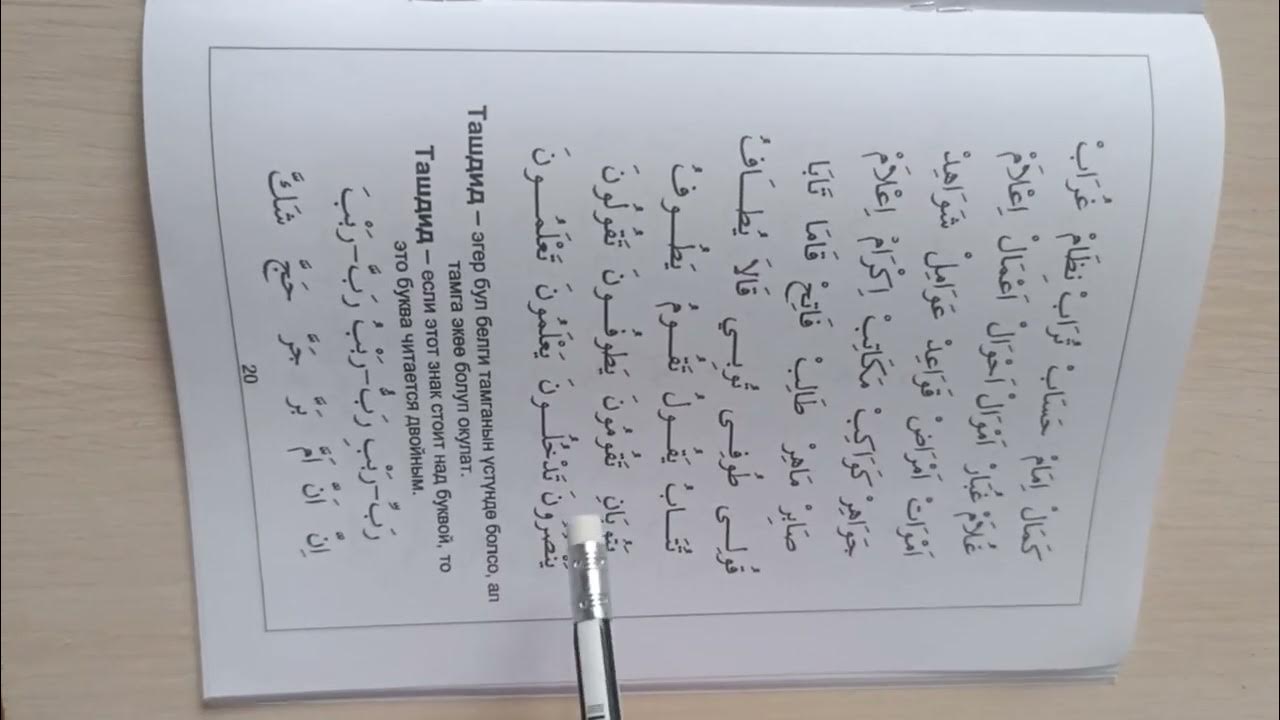 كَمَالْ اِمَامْ حَسَابْ تُرَابْ نِظَامْ غُرَابْ
غُلَامْ غُبَارْ اَمْوَالْ اَحْوَالْ اَعْمَالْ اِعْلَامْ
اَمْوَاتْ اَمْرَاضْ قَوَاعِدْ عَوَامِلْ شَوَاهِدْ
جَوَاهِرْ كَوَاكِبْ مَكَاتِبْ اِكْرَامْ اِعْلَامْ
صَابِرْ مَاهِرْ طَالِبْ فَاتِحْ قَامَا تَابَا
قُولِى طُوفِى تُوبِي قَالَا يُطَافُ
تُتَابُ يَقُولُ تَقُومُ يَطُوفُ
تَقُومُونَ يَطُوفُونَ تَقُولُونَ
يَنْصُرُونَ تَدْخُلُونَ يَعْلَمُونَ تَعْلَمُونَ
Ташдид – эгер бул белги тамганын үстүндө болсо, ал
тамга экөө болуп окулат.
Ташдид – если этот знак стоит над буквой, то
это буква читается двойным.
رَبَّ-رَبْبَ رَبُّ-رَبْبُ رَبَّ-رَبْبَ
اِنَّ اَنَّ اَمَّ بَرَّ جَرَّ حَجَّ شَكَّ
20